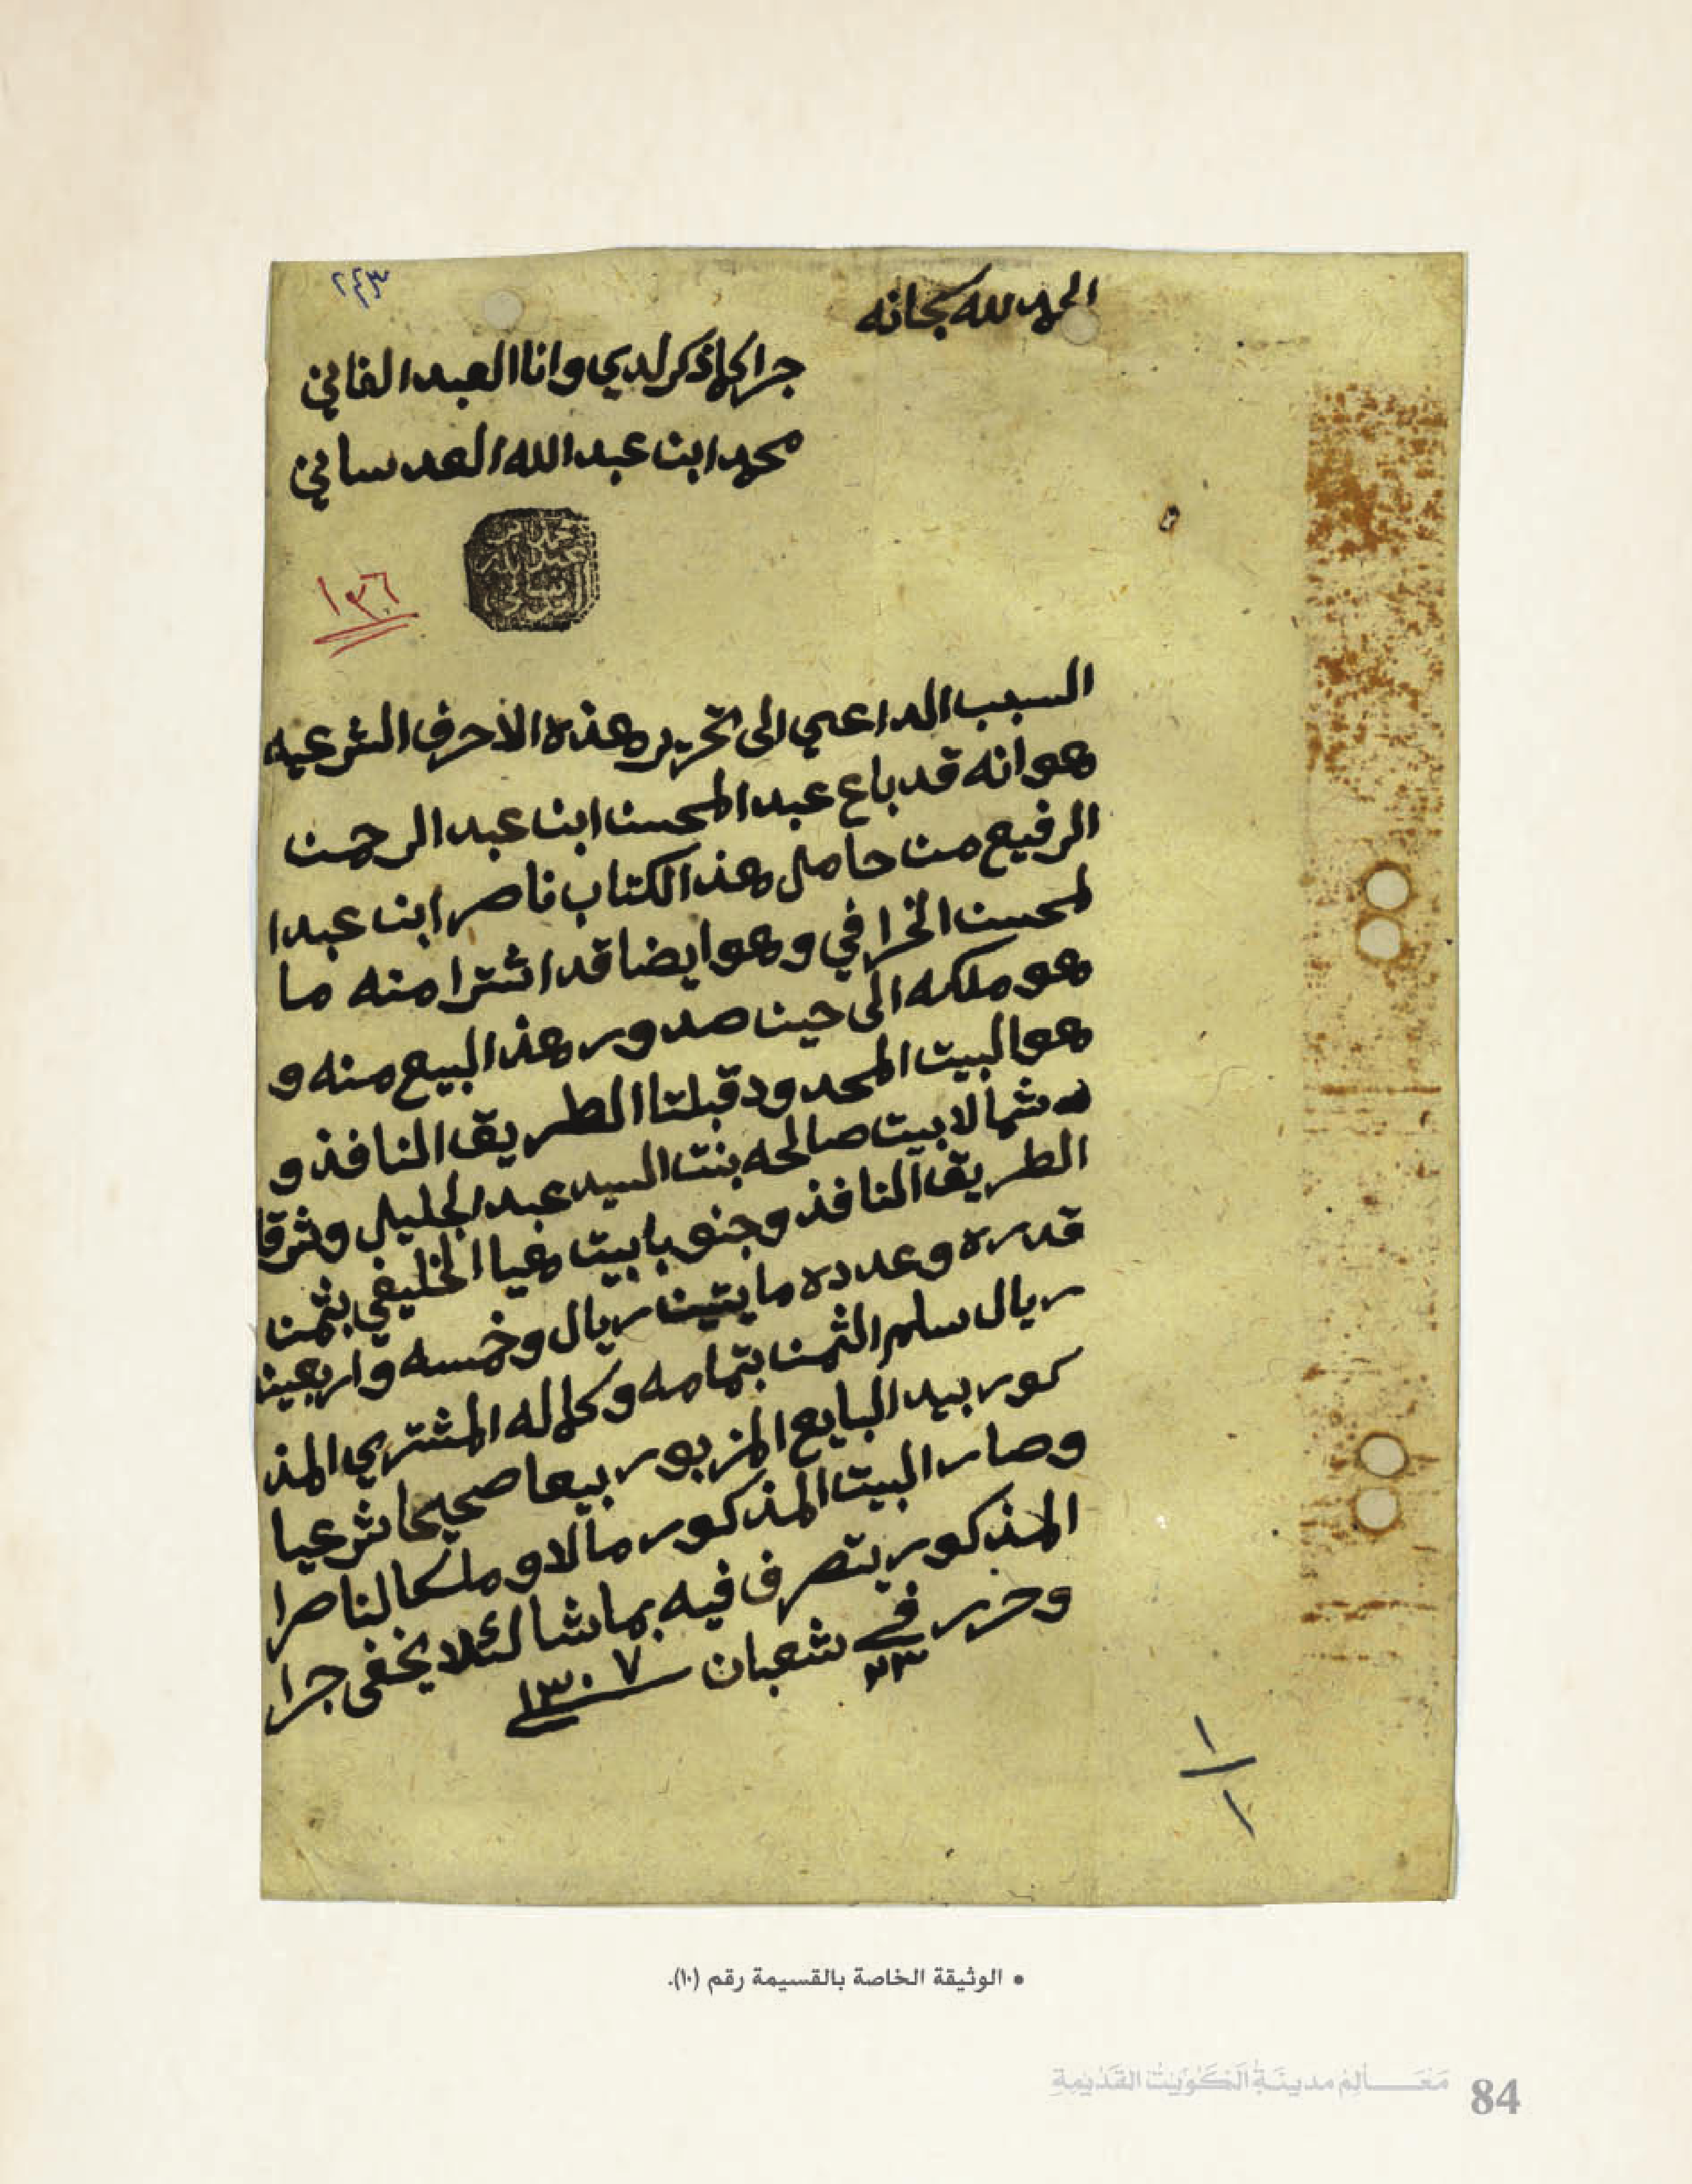 ٢٤٣
الحمد لله سبحانه
جرا كما ذكر لدي وانا العبد الفاني
محمد ابن عبد الله العدساني
محمد ابن عبد الله العدساني
١٣٦
السبب الداعي الى تحرير هذه الاحرف الشرعيه
هو انه قد باع عبد المحسن ابن عبد الرحمن
الرفيع من حامل هذا الكتاب ناصر ابن عبد ا
لمحسن الخرافي وهو ايضا قد اشترا منه ما
هو ملكه الى حين صدور هذ البيع منه و
هو البيت المحدود قبلتا الطريق النافذ و
شمالا بيت صالحه بنت السيد عبد الجليل وشرقا
الطريق النافذ وجنوبا بيت هيا الخليفي بثمن
قدره وعدده مايتين ريال وخمسه واربعين
ريال سلم الثمن بتمامه وكماله المشتري المذ
كور بيد البايع المزبور بيعا صحيحا شرعيا
وصار البيت المذكور مالا وملكا لناصرا
المذكور يتصرف فيه بما شا لئلا يخفى جرا
وحرر في ٢٣ شعبان سنة ١٣٠٧
١/١
• الوثيقة الخاصة بالقسيمة رقم (١٠).
مَعَـــالِمُ مدينَةِ الكُوَيْت القَدْيمِةِ
84